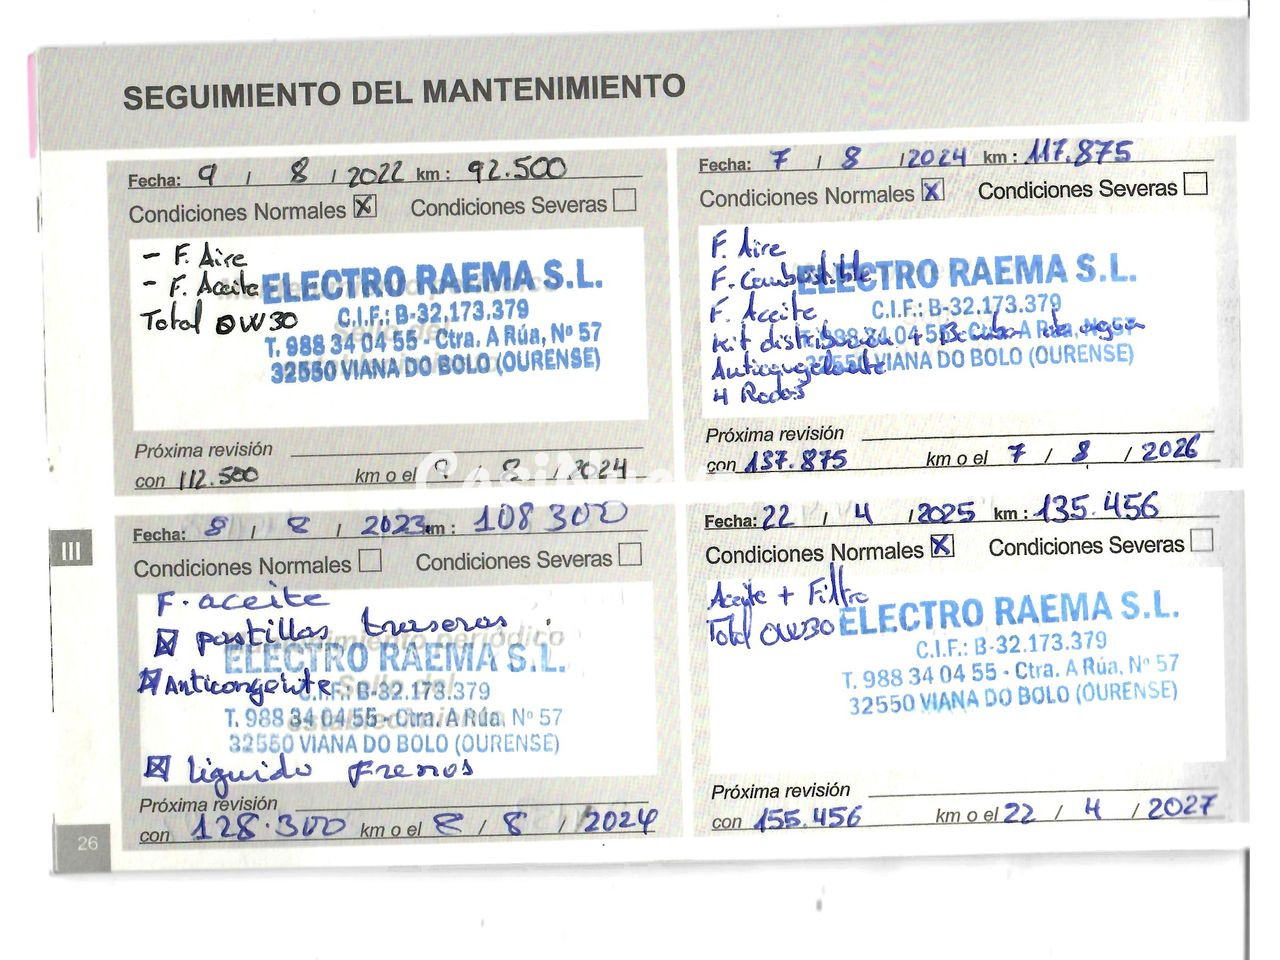 SEGUIMIENTO DEL MANTENIMIENTO
Fecha: 9 / 8 / 2022 km : 92.500
Condiciones Normales X Condiciones Severas
- F. Aire
- F. Aceite
Total 0W30
ELECTRO RAEMA S.L.
C.I.F.: B-32.173.379
T. 988 34 04 55 - Ctra. A Rúa, Nº 57
32550 VIANA DO BOLO (OURENSE)
Próxima revisión
con 112.500 km o el 9 / 8 / 2024
Fecha: 8 / 8 / 2023 km : 108300
Condiciones Normales Condiciones Severas
F. aceite
X pastillas traseras
ELECTRO RAEMA S.L.
X Anticongelnte
C.I.F.: B-32.173.379
T. 988 34 04 55 - Ctra. A Rúa, Nº 57
32550 VIANA DO BOLO (OURENSE)
X liguido Frenos
Próxima revisión
con 128.300 km o el 8 / 8 / 2024
Fecha: 7 / 8 / 2024 km : 117.875
Condiciones Normales X Condiciones Severas
F. Aire
F. Combustible
F. Aceite
Kit distribucion + Bomba de agua
Anticongelante
4 Rodos
ELECTRO RAEMA S.L.
C.I.F.: B-32.173.379
T. 988 34 04 55 - Ctra. A Rúa, Nº 57
32550 VIANA DO BOLO (OURENSE)
Próxima revisión
con 137.875 km o el 7 / 8 / 2026
Fecha: 22 / 4 / 2025 km : 135.456
Condiciones Normales X Condiciones Severas
Aceite + Filtro
Total 0W30
ELECTRO RAEMA S.L.
C.I.F.: B-32.173.379
T. 988 34 04 55 - Ctra. A Rúa, Nº 57
32550 VIANA DO BOLO (OURENSE)
Próxima revisión
con 155.456 km o el 22 / 4 / 2027
III
26